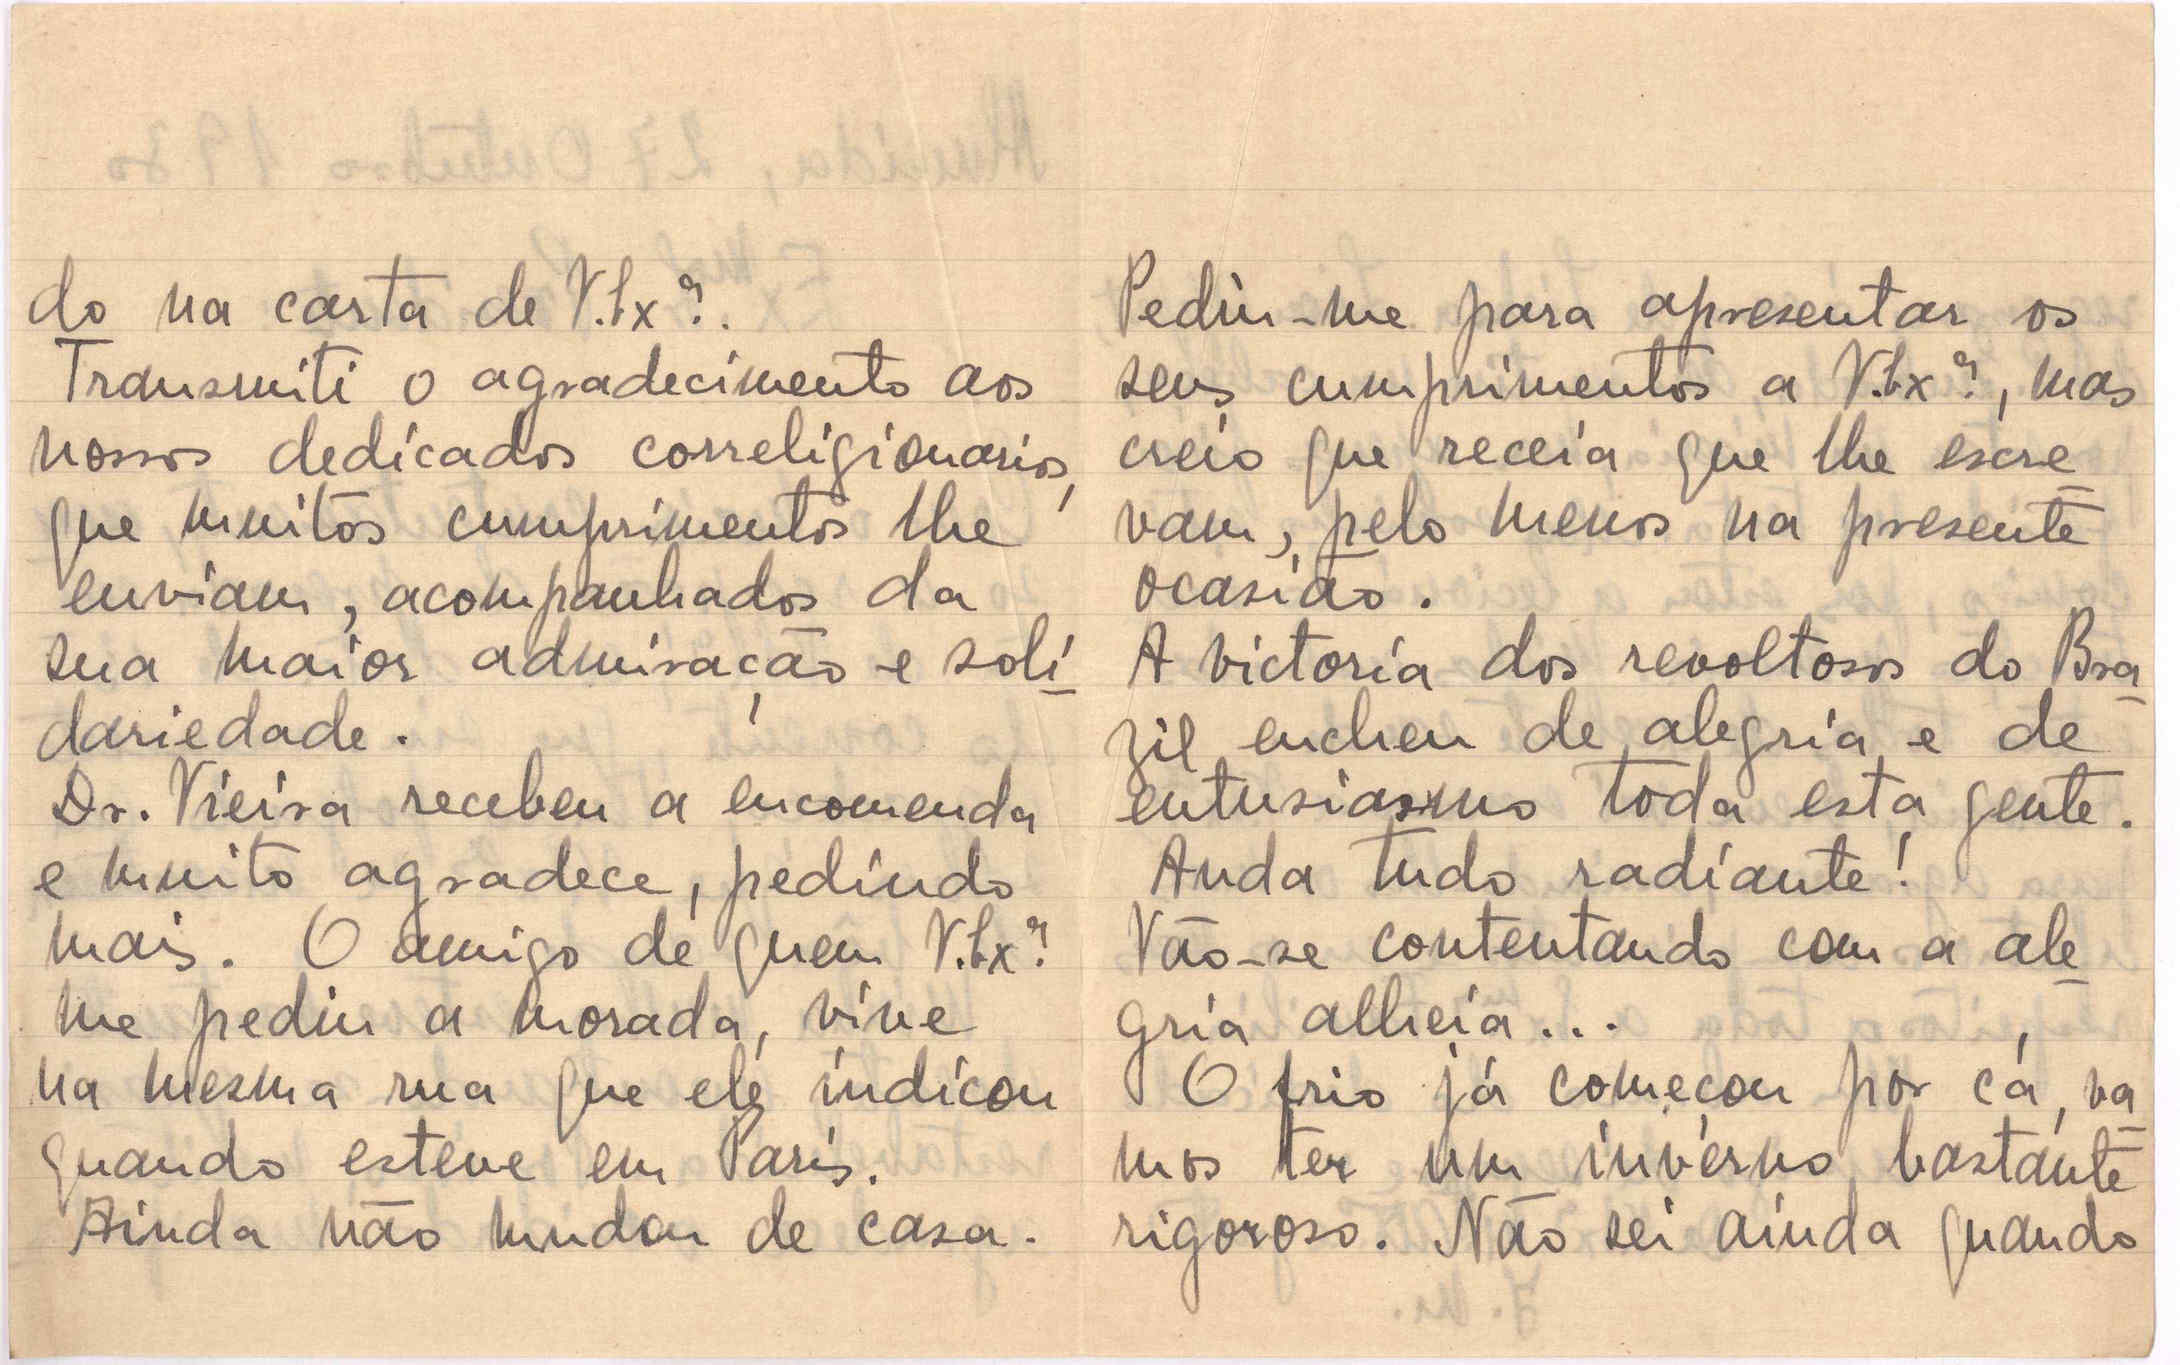 do na carta de V.Ex.ª.
Transmiti o agradecimento aos
nossos dedicados correligionarios,
que muitos cumprimentos lhe
enviam, acompanhados da
sua maior admiração e soli-
dariedade.
Dr. Vieira recebeu a encomenda
e muito agradece, pedindo
mais. O amigo de quem V.Ex.ª
me pediu a morada, vive
na mesma rua que ele indicou
quando esteve em Paris.
Ainda não mudou de casa.
Pediu-me para apresentar os
seus cumprimentos a V.Ex.ª, mas
creio que receia que lhe escre-
vam, pelo menos na presente
ocasião.
A victoria dos revoltosos do Bra-
zil encheu de alegria e de
entusiasmo toda esta gente.
Anda tudo radiante!
Vão-se contentando com a ale-
gria alheia...
O frio já começou por cá, va-
mos ter um inverno bastante
rigoroso. Não sei ainda quando
27 Outubro 1930